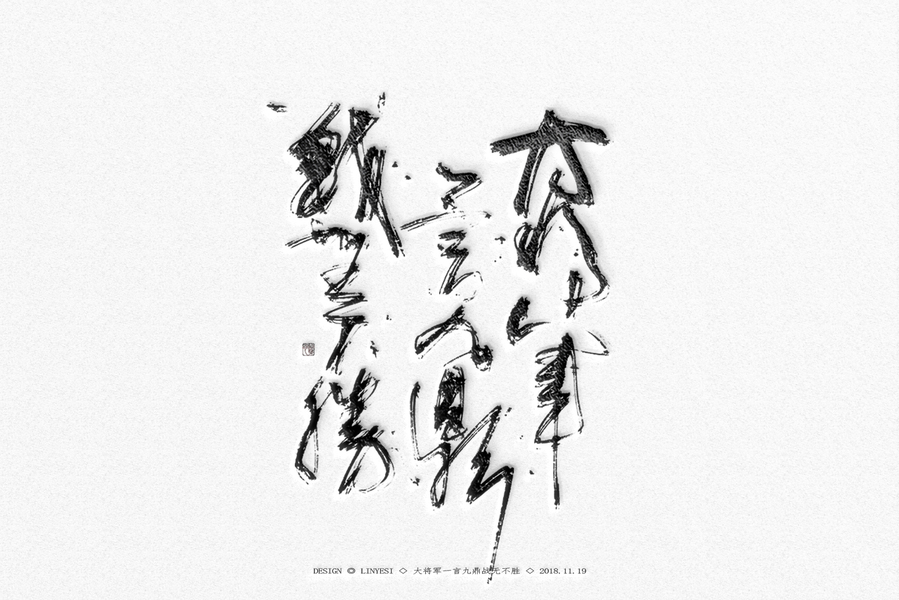 大将軍
一言九鼎
戰無不勝
DESIGN ◎ LINYESI ◇ 大将军一言九鼎战无不胜 ◇ 2018.11.19